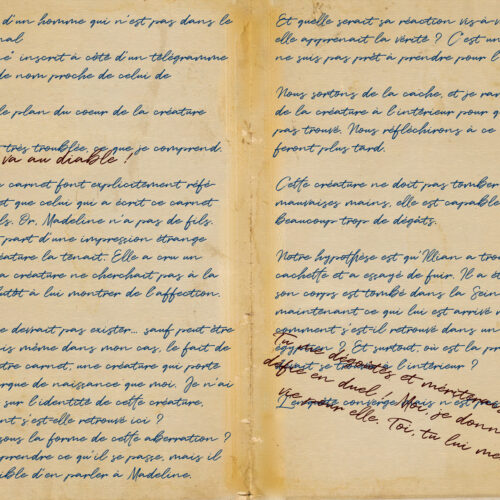 d'un homme qui n'est pas dans le
nal
é" inscrit à côté d'un télégramme
de nom proche de celui de
le plan du coeur de la créature
très troublée, ce que je comprend.
va au diable !
carnet font explicitement réfé-
et que celui qui a écrit ce carnet
ls. Or, Madeline n'a pas de fils.
part d'une impression étrange
éature la tenait. Elle a cru un
a créature ne cherchait pas à la
lutôt à lui montrer de l'affection.
e devrait pas exister... sauf peut être
is même dans mon cas, le fait de
tre carnet, une créature qui porte
rque de naissance que moi. Je n'ai
sur l'identité de cette créature,
nt s'est-elle retrouvé ici ?
sous la forme de cette aberration ?
prendre ce qu'il se passe, mais il
ible d'en parler à Madeline.
Et quelle serait sa réaction vis-à-v
elle apprenait la vérité ? C'est un
ne suis pas prêt à prendre pour l'
Nous sortons de la cache, et je ran
de la créature à l'intérieur pour q
pas trouvé. Nous réfléchirons à ce
feront plus tard.
Cette créature ne doit pas tomber
mauvaises mains, elle est capable
beaucoup trop de dégâts.
Notre hypothèse est qu'Illian a trou
cachette et a essayé de fuir. Il a ét
son corps est tombé dans la Sein
maintenant ce qui lui est arrivé
comment s'est-il retrouvé dans un
égyptien ? Et surtout, où est la pr
devait se trouver à l'intérieur ?
L'enquête converge mais n'est pa
Tu me dégoutes et mériterai
défié en duel ! Moi, je donn
vie pour elle. Toi, tu lui me